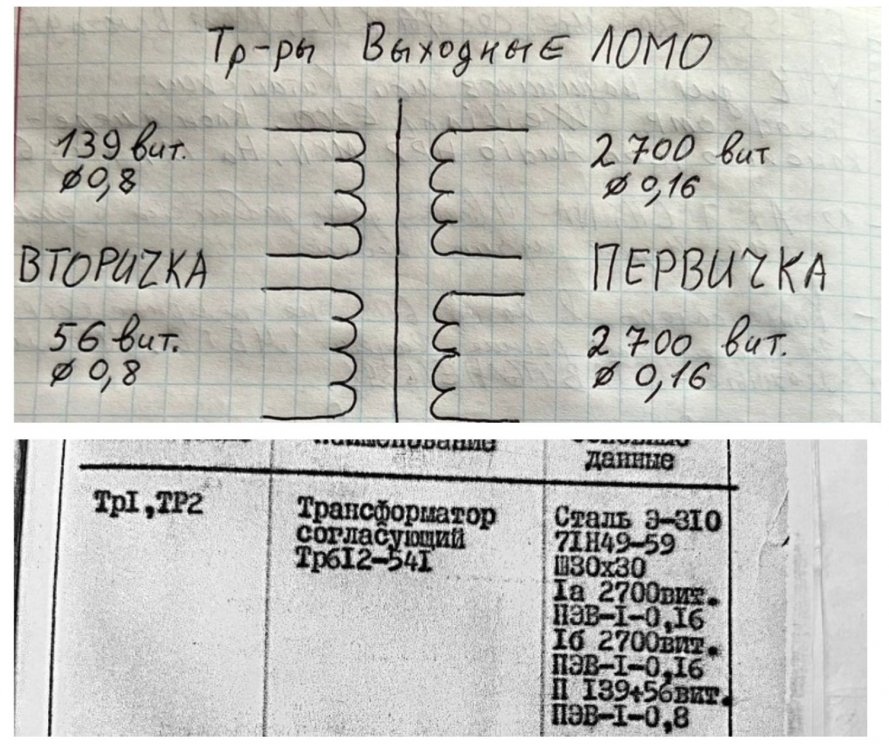 Тр-ры Выходные ЛОМО
139 вит.
ø 0,8
2 700 вит
ø 0,16
ВТОРИЧКА
ПЕРВИЧКА
56 вит.
ø 0,8
2 700 вит.
ø 0,16
данные
ТрI,ТР2
Трансформатор
согласующий
Трб12-54I
Сталь Э-3I0
7IН49-59
Ш30х30
Iа 2700вит.
ПЭВ-I-0,I6
Iб 2700вит.
ПЭВ-I-0,I6
П I39+56вит.
ПЭВ-I-0,8